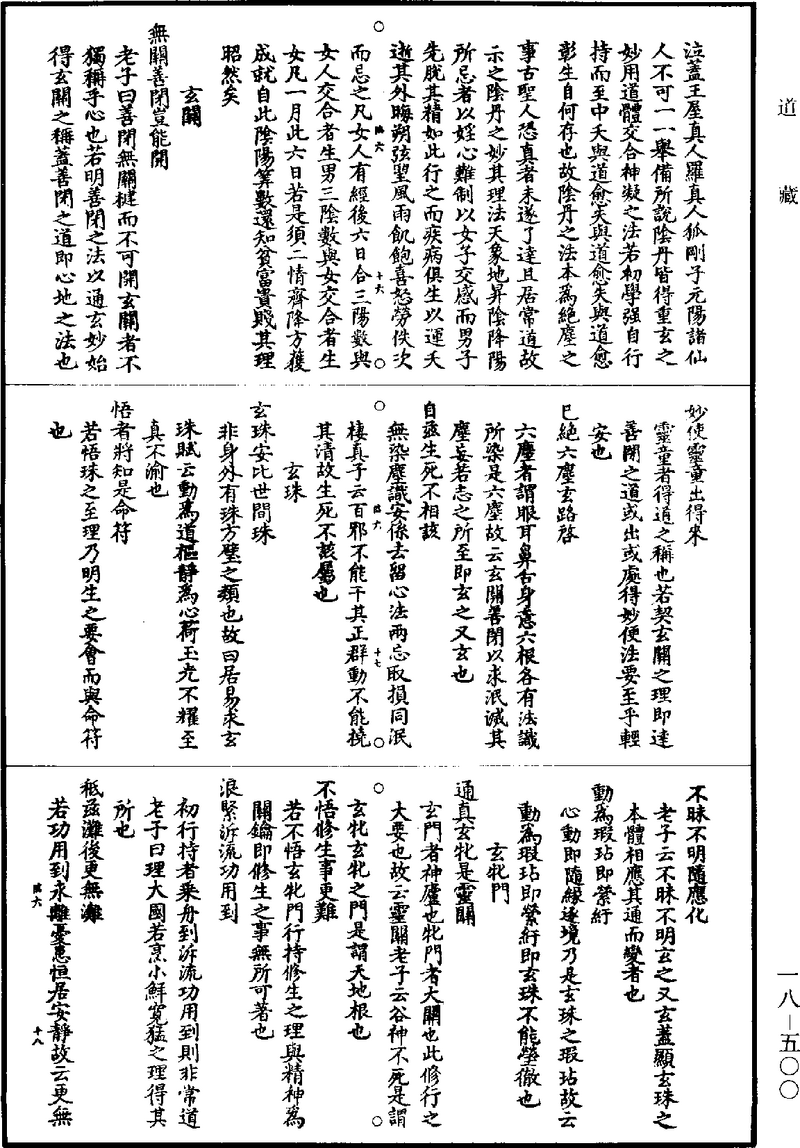 道藏
泣蓋王屋真人羅真人狐剛子元陽諸仙
人不可一一舉備所說陰丹皆得重玄之
妙用道體交合神凝之法若初學强自行
持而至中夭與道愈失與道愈失與道愈
彰生自何存也故陰丹之法本為絕塵之
事古聖人恐真者未遂了達且居常道故
示之陰丹之妙其理法天象地昇陰降陽
所忌者以婬心難制以女子交感而男子
先脫其精如此行之而疾病俱生以運夭
逝其外晦朔弦望風雨飢飽喜怒勞佚次
而忌之凡女人有經後六日合三陽數與
女人交合者生男三陰數與女交合者生
女凡一月此六日若是須二情齊降方獲
成就自此陰陽算數還知貧富貴賤其理
昭然矣
玄關
無關善閉豈能開
老子曰善閉無關楗而不可開玄關者不
獨稱乎心也若明善閉之法以通玄妙始
得玄關之稱蓋善閉之道即心地之法也
妙使靈童出得來
靈童者得道之稱也若契玄關之理即達
善閉之道或出或處得妙便法要至乎輕
安也
巳絕六塵玄路啓
六塵者謂眼耳鼻舌身意六根各有法識
所染是六塵故云玄關善閉以求泯滅其
塵妄若志之所至即玄之又玄也
自亟生死不相該
無染塵識安係去留心法兩忘取損同泯
棲真子云百邪不能干其正群動不能撓
其清故生死不該屬也
玄珠
玄珠安比世間珠
非身外有珠方璧之類也故曰居易求玄
珠賦云動為道樞靜為心荷玉光不耀至
真不渝也
悟者將知是命符
若悟珠之至理乃明生之要會而與命符
也
不昧不明隨應化
老子云不昧不明玄之又玄蓋顯玄珠之
本體相應其通而變者也
動為瑕玷即縈紆
心動即隨緣逐境乃是玄珠之瑕玷故云
動為瑕玷即縈紆即玄珠不能瑩徹也
玄牝門
通真玄牝是靈關
玄門者神廬也牝門者大關也此修行之
大要也故云靈關老子云谷神不死是謂
玄牝玄牝之門是謂天地根也
不悟修生事更難
若不悟玄牝門行持修生之理與精神為
關鑰即修生之事無所可著也
浪緊泝流功用到
初行持者乘舟到泝流功用到則非常道
老子曰理大國若烹小鮮寬猛之理得其
所也
秪茲灘後更無灘
若功用到永離憂患恒居安靜故云更無
臨六 十六
臨六 十七
臨六 十八
一八—五〇〇